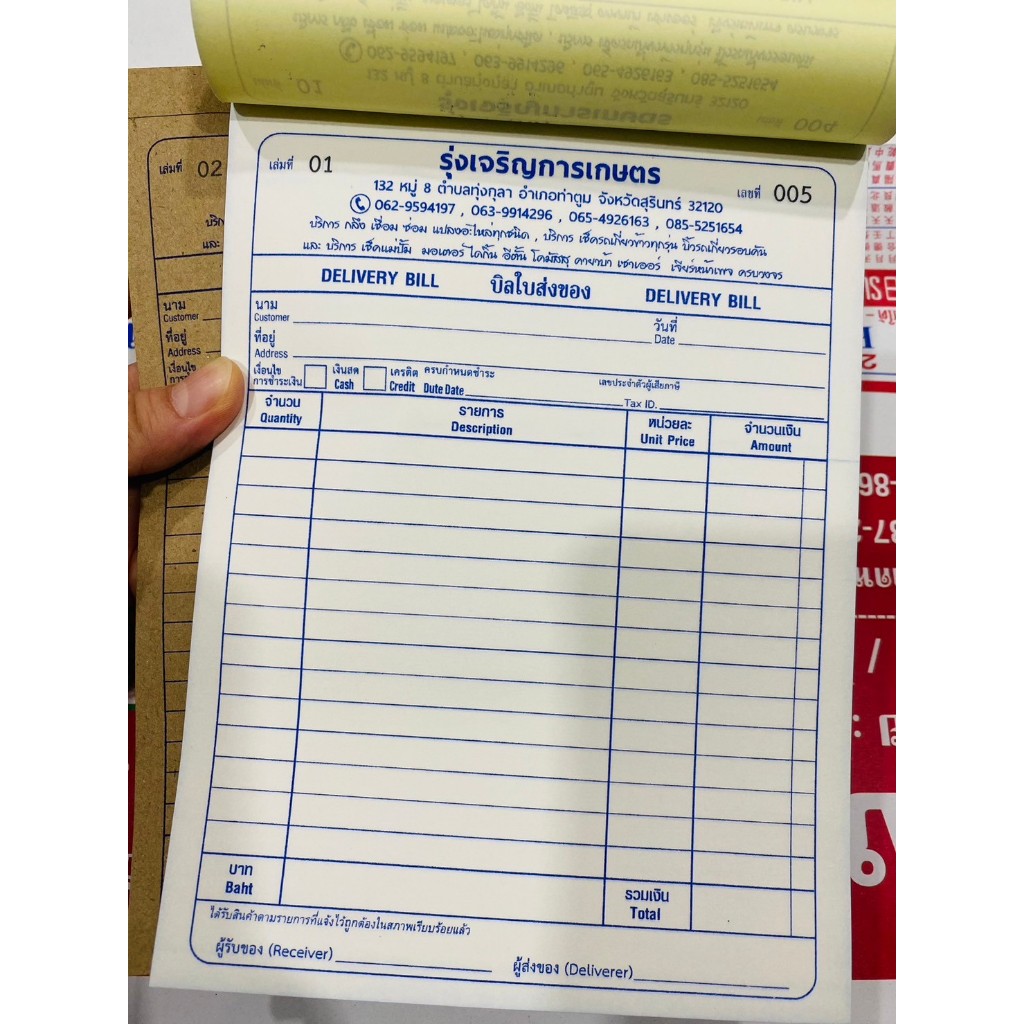 เล่มที่ 01
รุ่งเจริญการเกษตร
เลขที่ 005
132 หมู่ 8 ตำบลทุ่งกุลา อำเภอท่าตูม จังหวัดสุรินทร์ 32120
062-9594197 , 063-9914296 , 065-4926163 , 085-5251654
บริการ กลึง เชื่อม ซ่อม แปลงอะไหล่ทุกชนิด , บริการ เช็ครถเกี่ยวข้าวทุกรุ่น บิ้วรถเกี่ยวรอบคัน
และ บริการ เช็คแม่ปั๊ม มอเตอร์ ไดกิ้น อีตั้น โคมัสสุ คายาบ้า เซาเออร์ เจียร์หน้าเพจ ครบวงจร
DELIVERY BILL บิลใบส่งของ DELIVERY BILL
นาม
Customer
วันที่
Date
ที่อยู่
Address
เงื่อนไข เงินสด เครดิต ครบกำหนดชำระ เลขประจำตัวผู้เสียภาษี
การชำระเงิน Cash Credit Dute Date Tax ID.
จำนวน รายการ หน่วยละ จำนวนเงิน
Quantity Description Unit Price Amount
บาท รวมเงิน
Baht Total
ได้รับสินค้าตามรายการที่แจ้งไว้ถูกต้องในสภาพเรียบร้อยแล้ว
ผู้รับของ (Receiver) ผู้ส่งของ (Deliverer)
เล่มที่ 02
และ
นาม
Customer
ที่อยู่
Address
เงื่อนไข